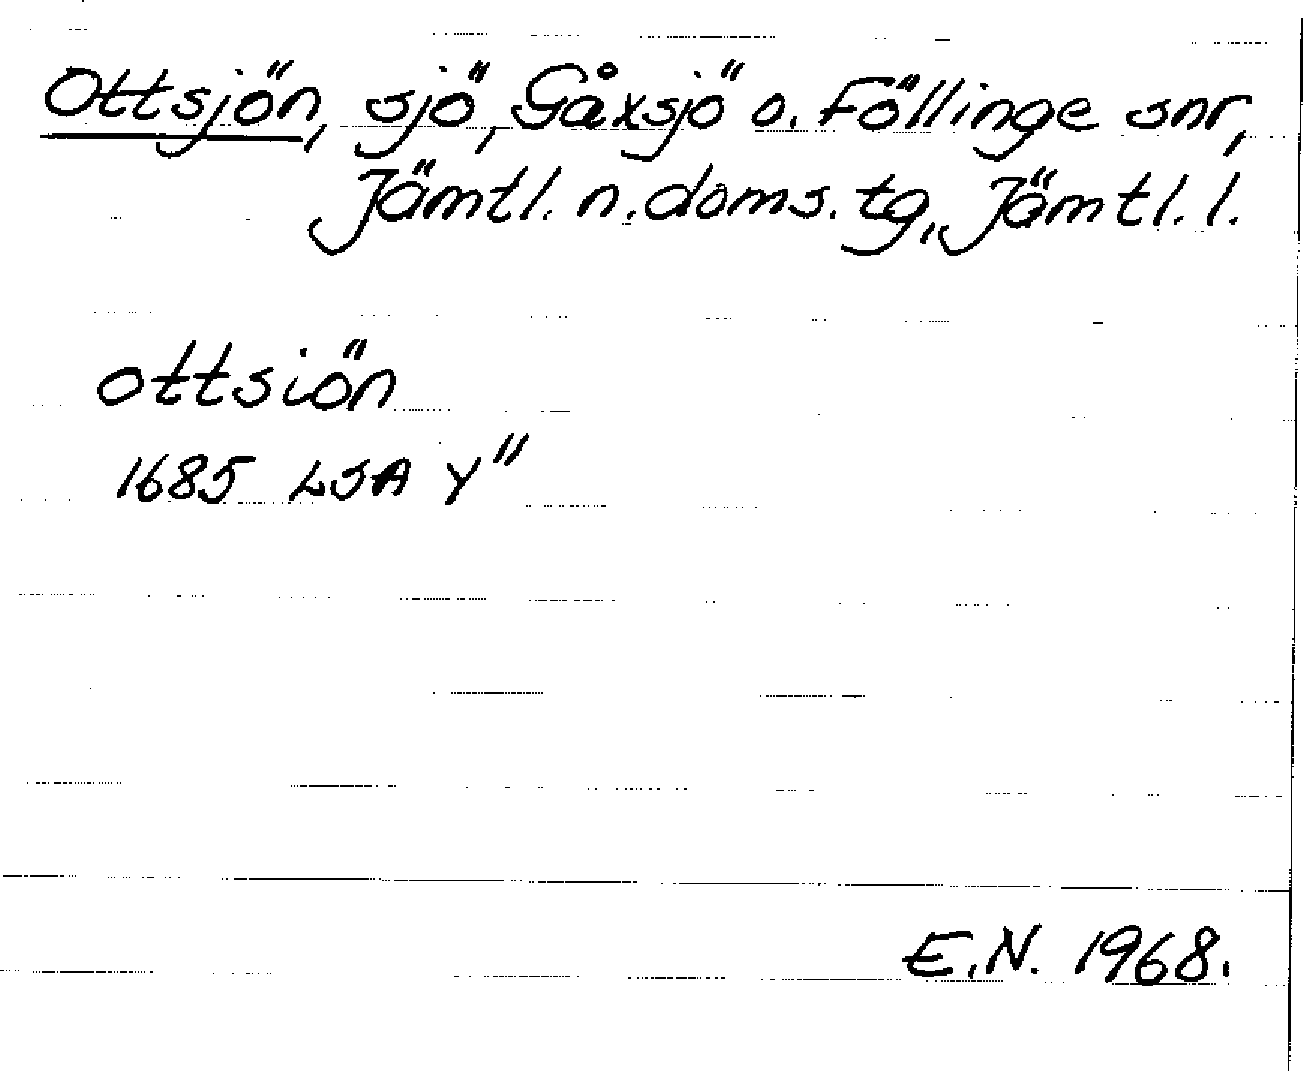 Ottsjön, sjö, Gåxsjö o. Föllinge snr,
Jämtl. n. doms. tg., Jämtl. l.
ottsiön
1685 LSA Y"
E.N. 1968.